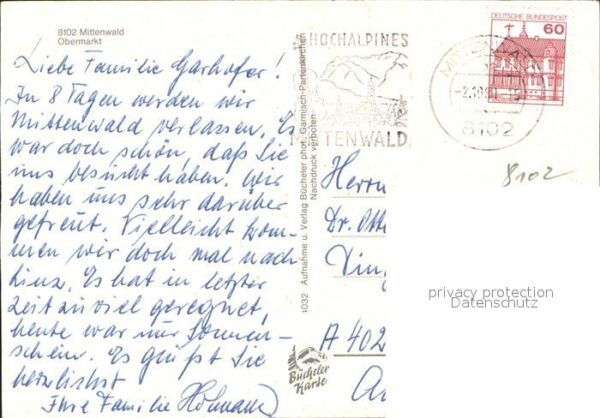 8102 Mittenwald
Obermarkt
Liebe Familie Garhofer!
In 8 Tagen werden wir
Mittenwald verlassen. Es
war doch schön, daß Sie
uns besucht haben. Wir
haben uns sehr darüber
gefreut. Vielleicht kom-
men wir doch mal nach
Linz. Es hat in letzter
Zeit zu viel geregnet,
heute war nur Sonnen-
schein. Es grüßt Sie
herzlichst
Ihre Familie
4032 Aufnahme u. Verlag Bücheler phot. Garmisch-Partenkirchen
Nachdruck verboten
HOCHALPINES
MITTENWALD
DEUTSCHE BUNDESPOST
60
MITTENWALD
8102
8102
Herrn
Dr. Otto
A 402
Bücheler
Karte
privacy protection
Datenschutz